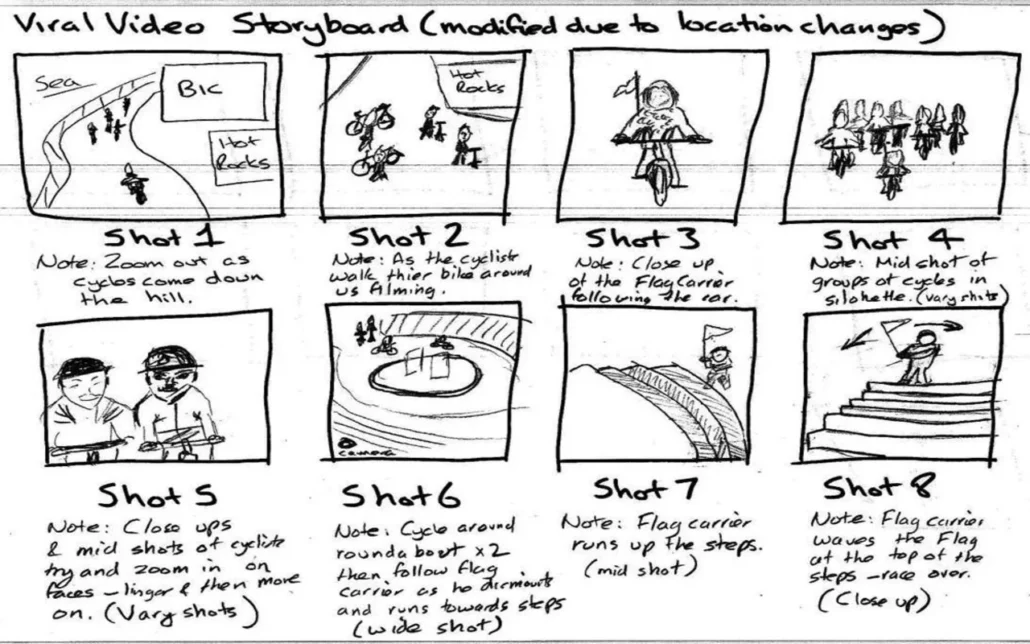 Viral Video Storyboard (modified due to location changes)
Sea
BIC
Hot
Rocks
Hot
Rocks
Shot 1
Note: Zoom out as
cycles come down
the hill.
Shot 2
Note: As the cyclists
walk thier bike around
us filming.
Shot 3
Note: Close up
of the Flag Carrier
following the car.
Shot 4
Note: Mid shot of
groups of cycles in
silohette. (vary shots)
camera
Shot 5
Note: Close ups
& mid shots of cyclists
try and zoom in on
faces - linger & then move
on. (Vary shots)
Shot 6
Note: Cycle around
roundabout x2
then follow flag
carrier as he dismounts
and runs towards steps
(wide shot)
Shot 7
Note: Flag carrier
runs up the steps.
(mid shot)
Shot 8
Note: Flag carrier
waves the Flag
at the top of the
steps - race over.
(Close up)